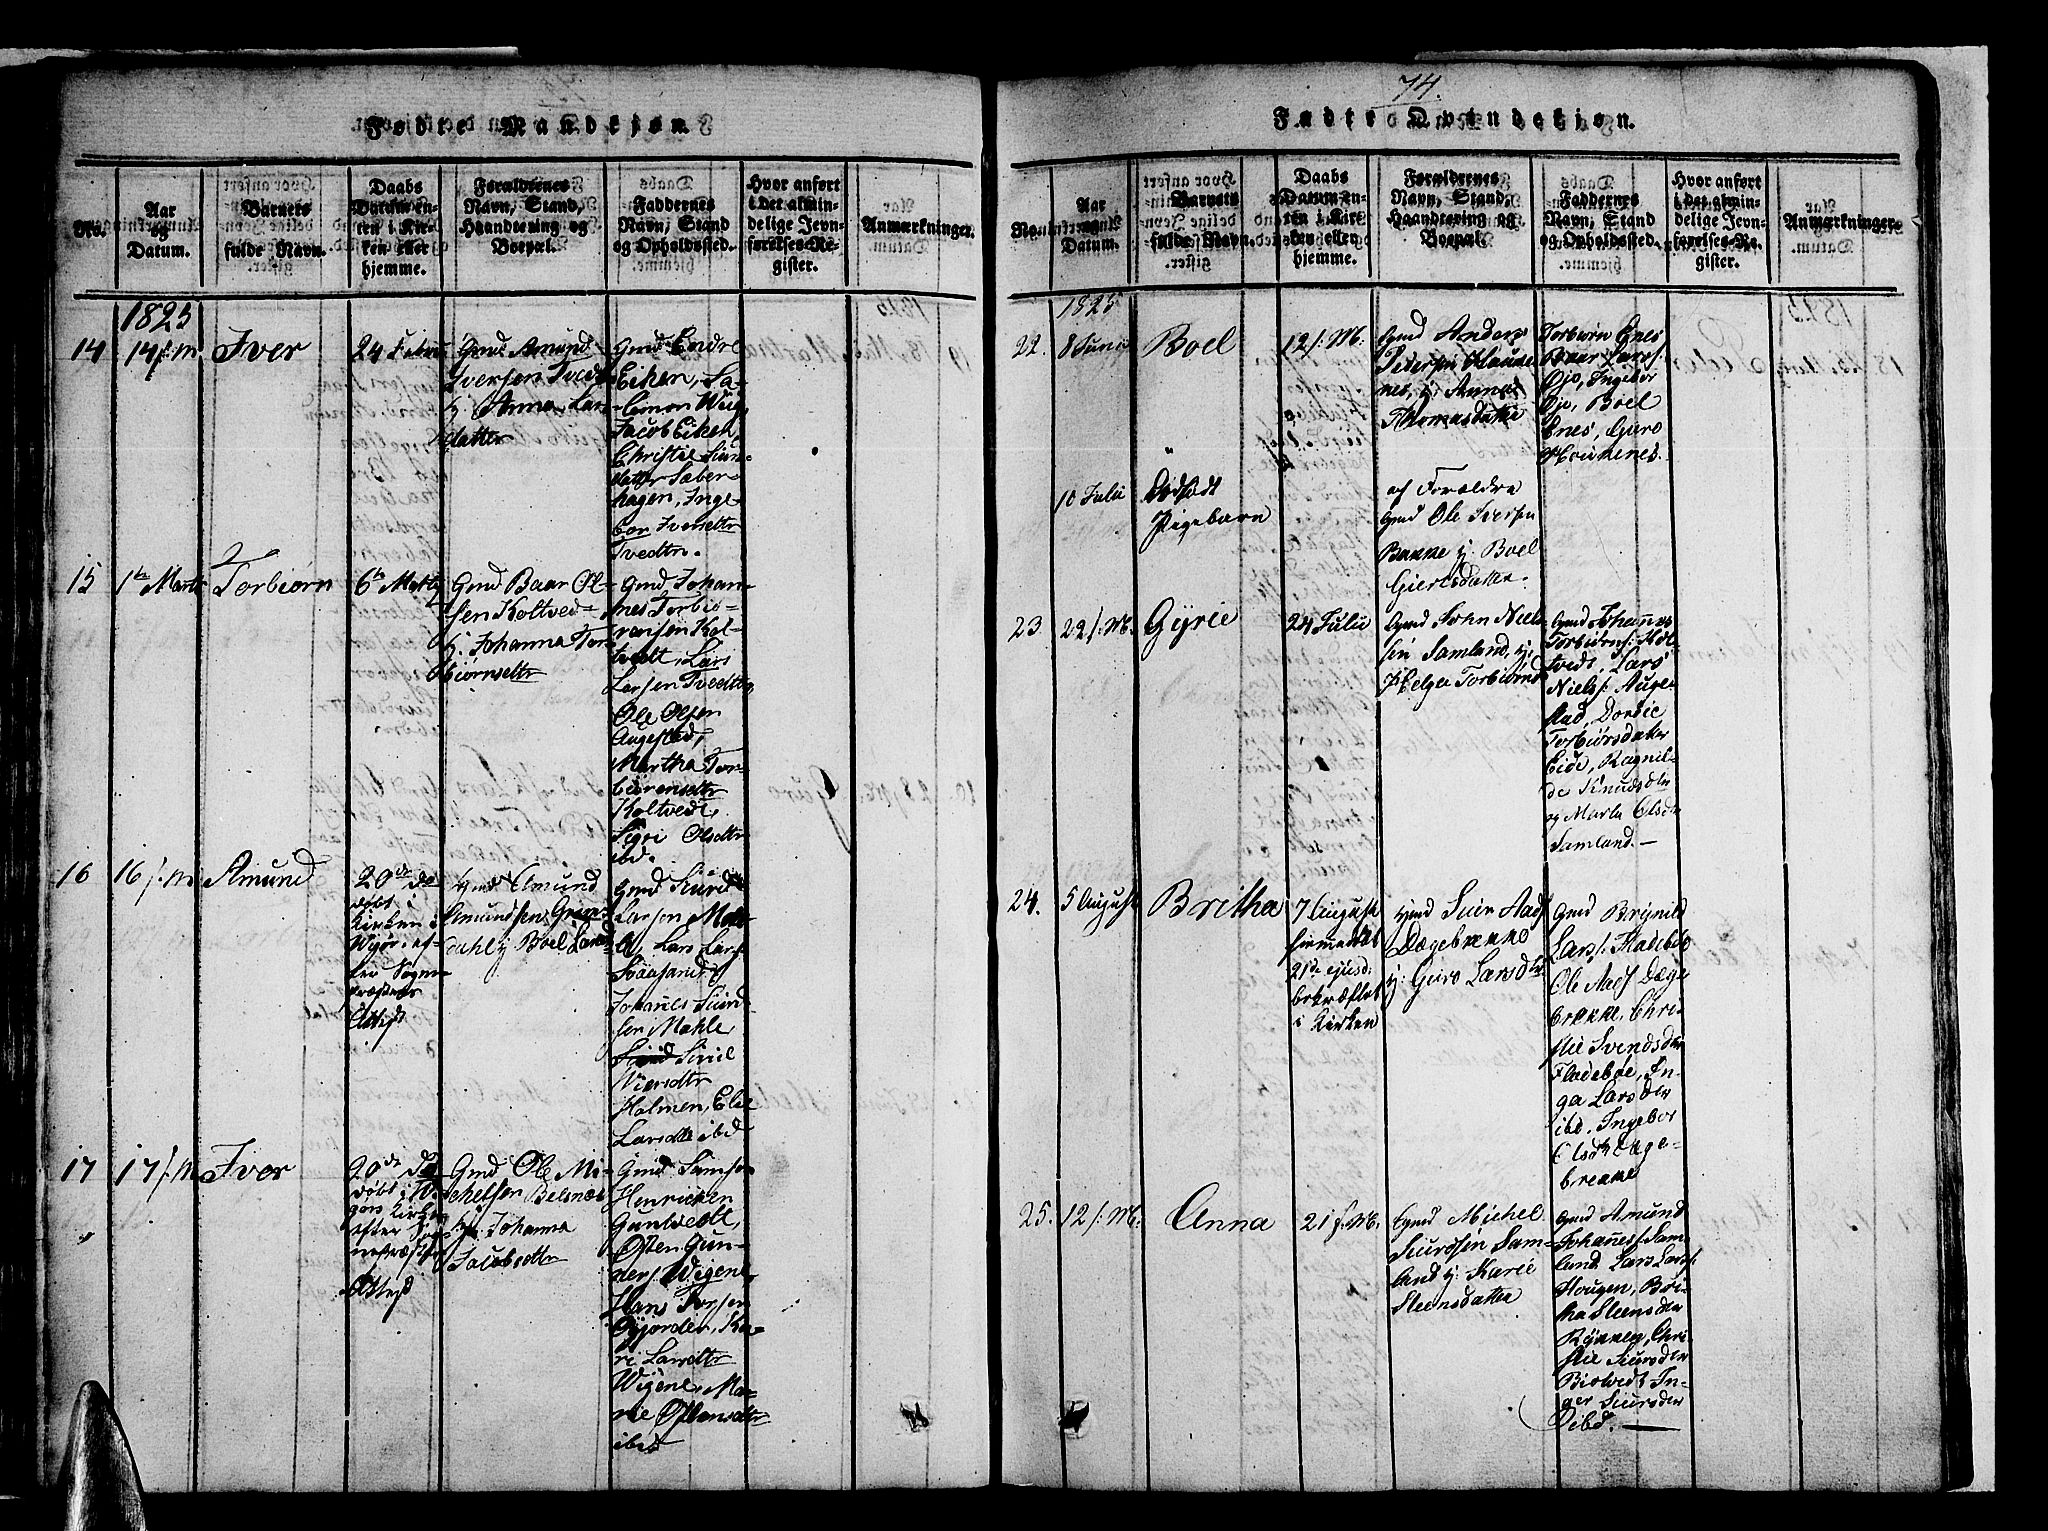 Fødte Mandkjøn
No.
Aar
og
Datum.
Barnets
fulde Navn.
Daabs
Datum en-
ten i Kir-
ken eller
hjemme.
Forældrenes
Navn, Stand,
Haandtering og
Boepæl.
Faddernes
Navn, Stand
og Opholdssted.
Hvor anført
i det almin-
delige Jevn-
førelses-Re-
gister.
Anmærkninger.
1825
14
14 f. m.
Iver
24 Febru
Gmd Amund
Iversen Tvedt
Anna Lars
datter
Gmd Endre
Eiken, Sa-
lomon Wiig,
Jacob Eiken,
Christie Siur-
datter Sæber-
hagen, Inge
bor Iversdtr
Tvedtn.
15
1te Marts
Torbiørn
6te Marts
Gmd Baar Ol-
sen Koltved
Johanna Tor
biørnsdtr
Gmd Johan-
nes Torbiø-
rensen Kol-
tvedt, Lars
Larsen Tvedt
Ole Olsen
Augestad,
Martha Tor-
biørensdtr
Koltvedt,
Sigri Olsdtr
ibd.
16
16 f. M
Amund
20de
døbt
Kirken i
efter Sogne
præstens
Attest
Gmd Amund
Amundsen
dahl Boel Larsd
Gmd Siurd
Larsen
Lars Lars
Johanes Siurd
sen Mahle
Siril
Iversdtr
Holmen, Elie
Larsdtr ibd
17
17 f. M
Iver
20de
døbt i
Kirke
efter Sog
nepræstens
Attest
Gmd Ole Mi-
chelsen Belsnæs
Johanna
Jacobsdtr
Gmd Samson
Henricken
Guntvedt,
Østen Gun-
ners. Wigene
Hans Torsen
Gjorder, Ka-
ri Larsdtr
Wigene, Ma-
rie Østensdtr
ibid
74.
Fødte Qvindekjøn.
No.
Aar
og
Datum.
Barnets
fulde Navn.
Daabs
Datum en-
ten i Kir-
ken eller
hjemme.
Forældrenes
Navn, Stand,
Haandtering og
Boepæl.
Faddernes
Navn, Stand
og Opholdssted.
Hvor anført
i det almin-
delige Jevn-
førelses-Re-
gister.
Anmærkninger.
1825
22.
8 Juni
Boel
12 f. M.
Gmd Anders
Pedersen Hauke
nes, Anna
Thomasdatter
Torbiørn Enes
Baar Lars.
Øjo, Ingebor
Øjo, Boel
Enes, Guro
Houkenes.
10 Julii
Dødfødt
Pigebarn
af Forældre
Gmd Ole Iversen
Bakke Boel
Giertsdatter.
23
22 f. M.
Gyrie
24 Julii
Gmd John Niel
sen Samland,
Helga Torbiørnsd
Gmd Johannes
Torbiørns. Kol
tvedt. Lars
Niels. Auge-
stad, Dordie
Torbiørsdatter
Eide, Ragnil-
de Knudsdtr
og Marta Olsdr
Samland.—
24.
5 August
Britha
7 August
hiemedøbt
21de ejusd:
bekræftet
i Kirken
Gmd Siur Aads
Dægebrekke
Guro Larsdtr
Gmd Brynild
Lars. Fladebøe
Ole Aads Dæge
brekke, Chri-
stie Svendsdtr
Fladebøe, In-
ga Larsdtr
ibd. Ingebor
Olsdtr Dæge-
brekke
25.
12 f. M.
Anna
21 f. M.
Gmd Michel
Siursen Sam-
land Karie
Steensdatter
Gmd Amund
Johanes. Sam-
land Lars Lars.
Hougen, Bri-
tha Steensdtr
Rykken, Chri-
stie Siursdtr
Biotvedt In-
ger Siursdtr
ibd.—